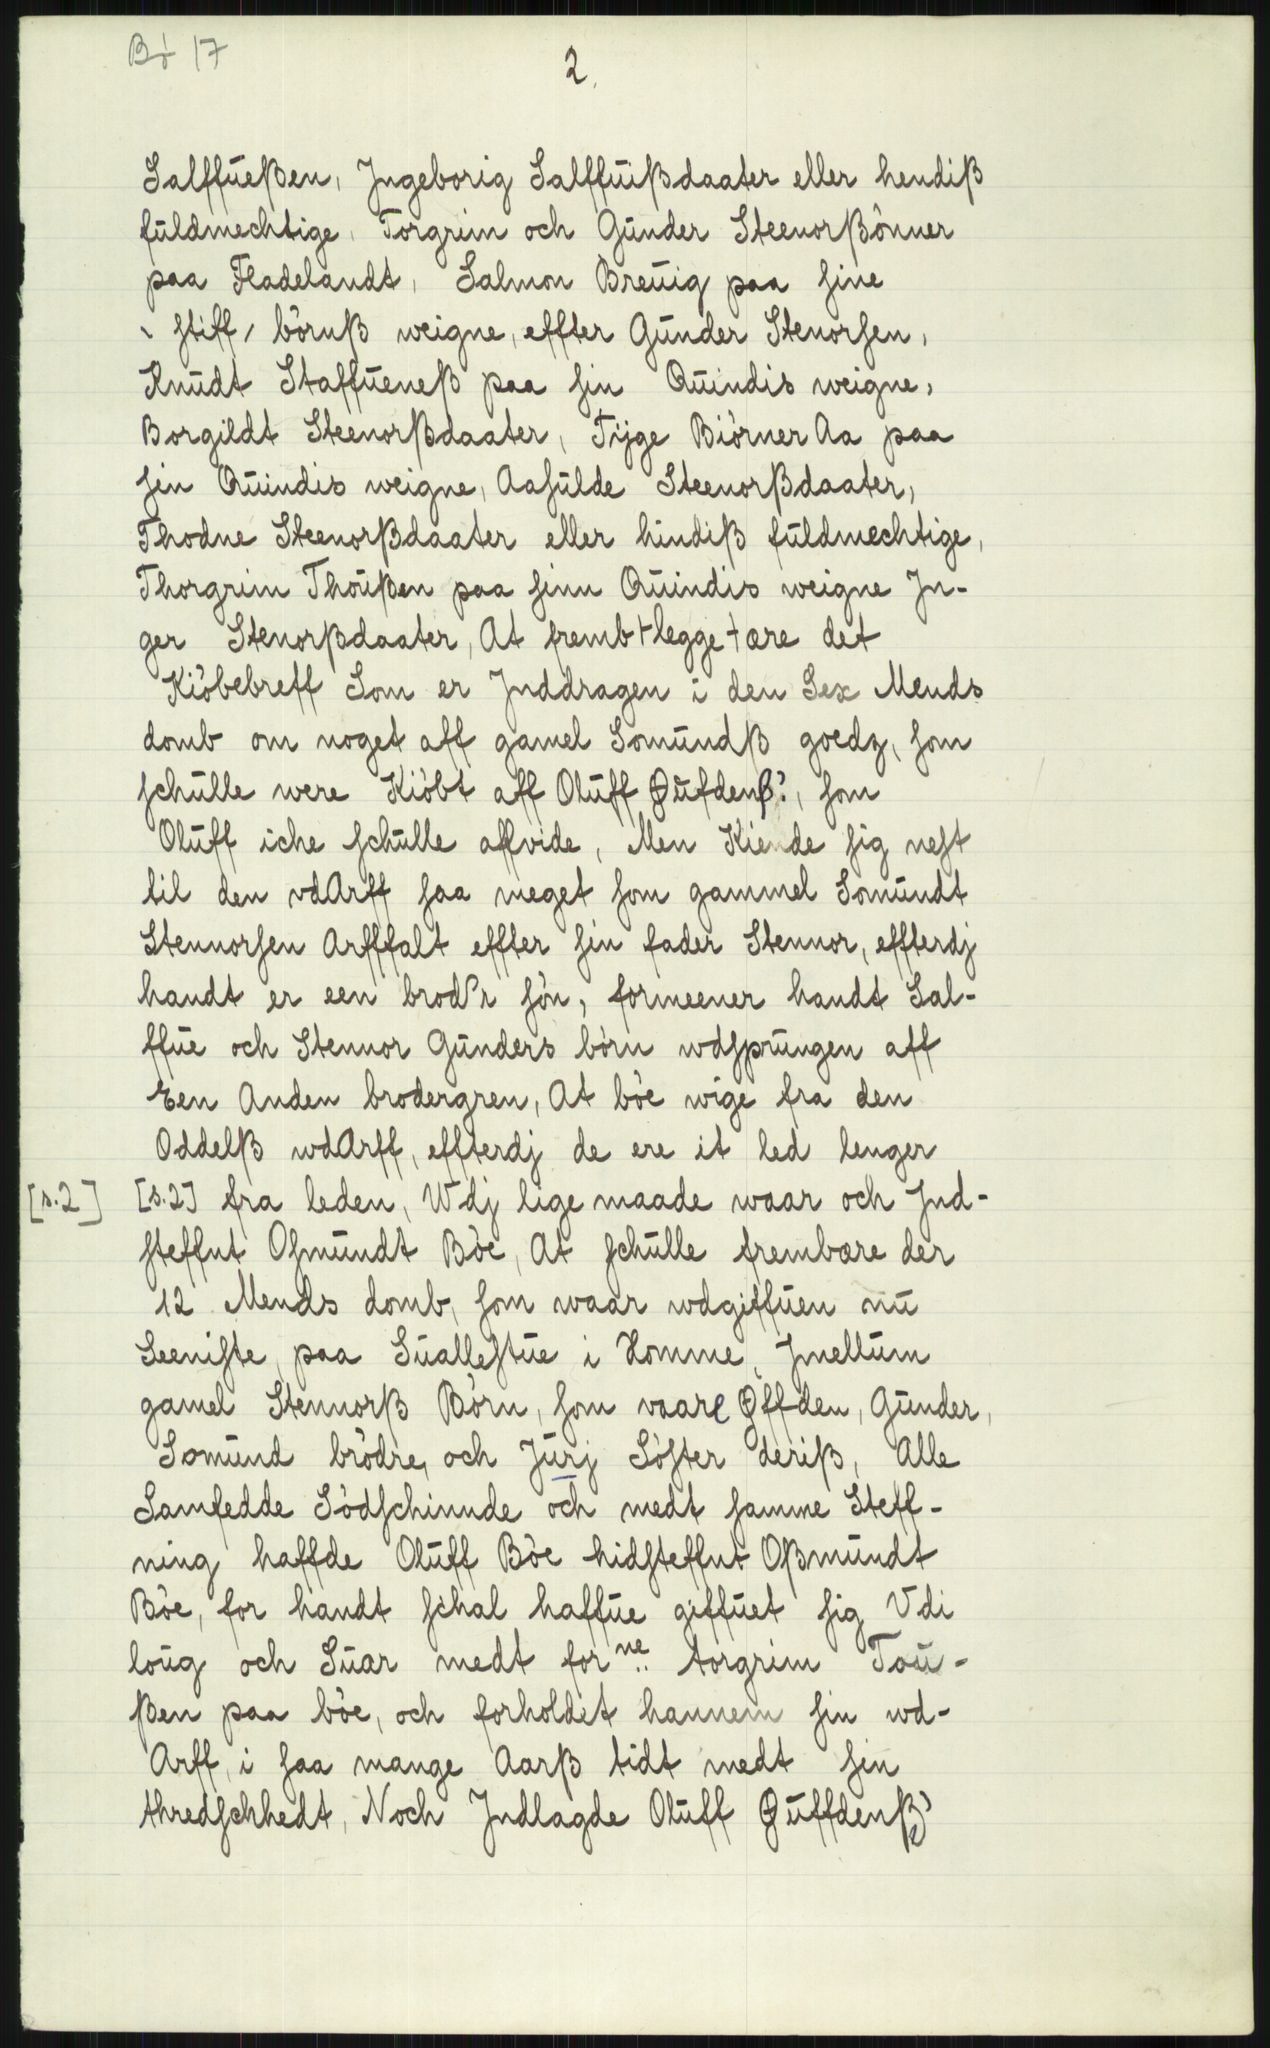 Bø 17
2.
Salffueßen, Jngeborig Salffuißdaater eller hendiß
fuldmechtige, Torgrim och Gunder Steenorßönner
paa Fladelandt, Salmon Breuig paa sine
, stiff, börnß weigne, effter Gunder Stenorsen,
Knudt Staffueneß paa sin Quindis weigne,
Borgildt Steenorßdaater, Tijge Biörner Aa paa
sin Quindis weigne, Aasulde Steenorßdaater,
Thodne Steenorßdaater eller hindiß fuldmechtige,
Thorgrim Thoußen paa sinn Quindis weigne Jn-
ger Stenorßdaater, At fremb+legge+ære det
Kiöbebreff Som er Jnddragen i den Sex Mends
domb om noget aff gamel Somundß goedz, som
schulle were Kiöbt aff Oluff Øufdenß?, som
Oluff iche schulle affvide, Men Kiende sig nest
til den vdArff saa meget som gammel Somundt
Stennorsen Arfffalt effter sin fader Stennor, effterdj
handt er een brod'r sön, formeener handt Sal-
ffue och Stennor Gunders börn wdsprungen aff
Een Anden brodergren, At böe wige fra den
Oddelß wdArff, effterdj de ere it led lenger
[s.2] [s.2] fra leden, Wdj lige maade waar och Jnd-
steffnt Osmundt Böe, At schulle frembære der
12 Mends domb, som waar wdgiffuen nu
Seeniste, paa Suallestue i Homme, Jmellum
gamel Stennorß Börn, som vaare Øffden, Gunder,
Somund brödre, och Jurj Söster deriß, Alle
Samfedde Södschinnde och medt samme Steff-
ning haffde Oluff Böe hidsteffnt Oßmundt
Böe, for handt schal haffue giffuet sig Vdi
loug och Suar medt forne.. torgrim Tou-
ßen paa böe, och forholdet hannem sin wd-
Arff, i saa mange Aarß tidt medt sin
thredschhedt, Noch Jndlagde Oluff Øuffdenß?